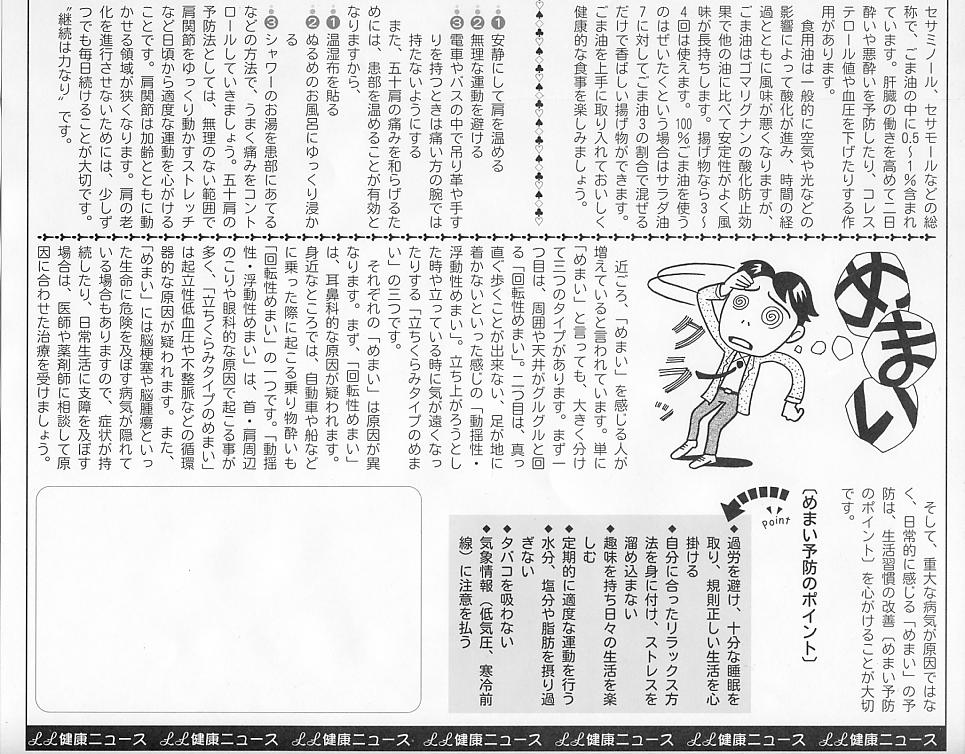 セサミノール、セサモールなどの総
称で、ごま油の中に0.5～1％含まれ
ています。肝臓の働きを高めて二日
酔いや悪酔いを予防したり、コレス
テロール値や血圧を下げたりする作
用があります。
食用油は一般的に空気や光などの
影響によって酸化が進み、時間の経
過とともに風味が悪くなりますが、
ごま油はゴマリグナンの酸化防止効
果で他の油に比べて安定性がよく風
味が長持ちします。揚げ物なら3～
4回は使えます。100％ごま油を使う
のはぜいたくという場合はサラダ油
7に対してごま油3の割合で混ぜる
だけで香ばしい揚げ物ができます。
ごま油を上手に取り入れておいしく
健康的な食事を楽しみましょう。
❶安静にして肩を温める
❷無理な運動を避ける
❸電車やバスの中で吊り革や手す
りを持つときは痛い方の腕では
持たないようにする
また、五十肩の痛みを和らげるた
めには、患部を温めることが有効と
なりますから、
❶温湿布を貼る
❷ぬるめのお風呂にゆっくり浸か
る
❸シャワーのお湯を患部にあてる
などの方法で、うまく痛みをコント
ロールしていきましょう。五十肩の
予防法としては、無理のない範囲で
肩関節をゆっくり動かすストレッチ
など日頃から適度な運動を心がける
ことです。肩関節は加齢とともに動
かせる領域が狭くなります。肩の老
化を進行させないためには、少しず
つでも毎日続けることが大切です。
〝継続は力なり〟です。
めまい
クラクラッ
近ごろ、「めまい」を感じる人が
増えていると言われています。単に
「めまい」と言っても、大きく分け
て三つのタイプがあります。まず一
つ目は、周囲や天井がグルグルと回
る「回転性めまい」。二つ目は、真っ
直ぐ歩くことが出来ない、足が地に
着かないといった感じの「動揺性・
浮動性めまい」。立ち上がろうとし
た時や立っている時に気が遠くなっ
たりする「立ちくらみタイプのめま
い」の三つです。
それぞれの「めまい」は原因が異
なります。まず、「回転性めまい」
は、耳鼻科的な原因が疑われます。
身近なところでは、自動車や船など
に乗った際に起こる乗り物酔いも
「回転性めまい」の一つです。「動揺
性・浮動性めまい」は、首・肩周辺
のこりや眼科的な原因で起こる事が
多く、「立ちくらみタイプのめまい」
は起立性低血圧や不整脈などの循環
器的な原因が疑われます。また、
「めまい」には脳梗塞や脳腫瘍といっ
た生命に危険を及ぼす病気が隠れて
いる場合もありますので、症状が持
続したり、日常生活に支障を及ぼす
場合は、医師や薬剤師に相談して原
因に合わせた治療を受けましょう。
そして、重大な病気が原因ではな
く、日常的に感じる「めまい」の予
防は、生活習慣の改善〔めまい予防
のポイント〕を心がけることが大切
です。
〔めまい予防のポイント〕
Point
◆過労を避け、十分な睡眠を
取り、規則正しい生活を心
掛ける
◆自分に合ったリラックス方
法を身に付け、ストレスを
溜め込まない
◆趣味を持ち日々の生活を楽
しむ
◆定期的に適度な運動を行う
◆水分、塩分や脂肪を摂り過
ぎない
◆タバコを吸わない
◆気象情報（低気圧、寒冷前
線）に注意を払う
LL健康ニュース LL健康ニュース LL健康ニュース LL健康ニュース LL健康ニュース LL健康ニュース LL健康ニュース